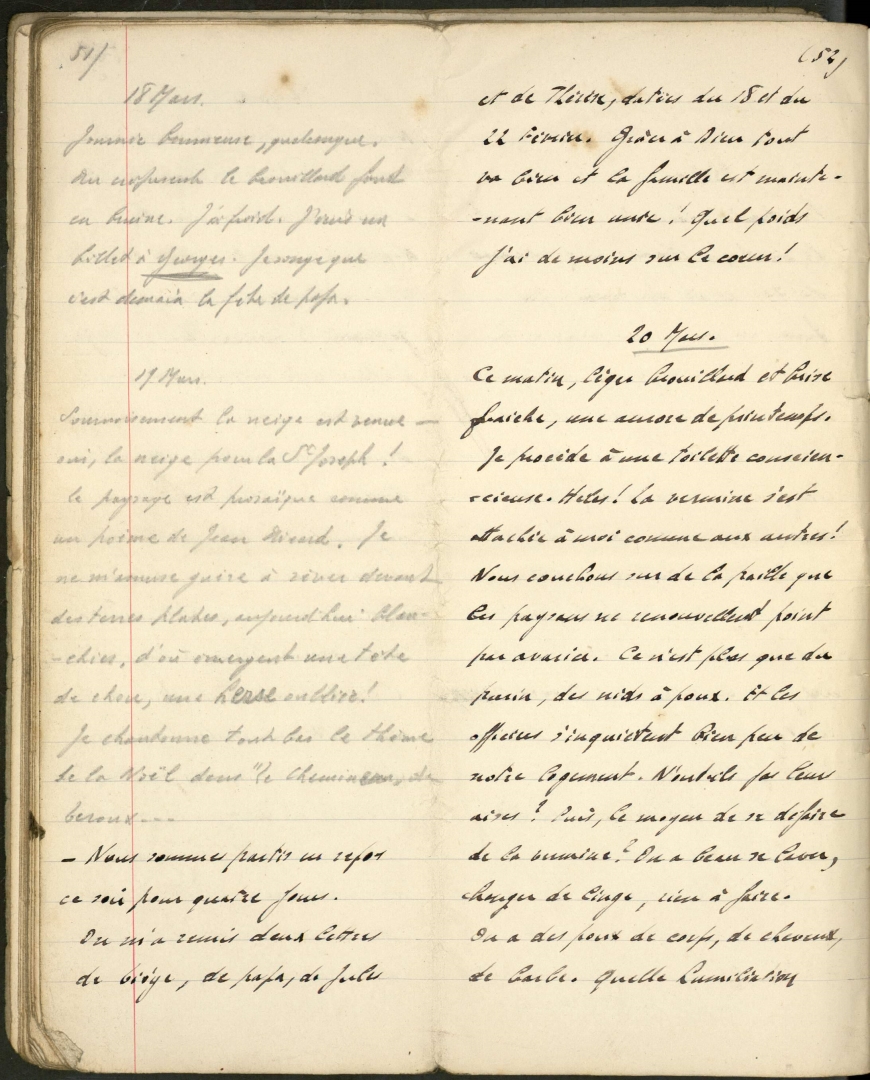 51)
18 Mars.
Journée brumeuse, quelconque.
Au crépuscule le brouillard fond
en bruine. J'ai froid. J'écris un
billet à Georges. Je songe que
c'est demain la fête de papa.
19 Mars.
Sournoisement la neige est venue —
oui, la neige pour la St Joseph !
le paysage est prosaïque comme
un poème de Jean Aicard. Je
ne m'amuse guère à rêver devant
des terres plates, aujourd'hui blan-
-chies, d'où émergent une tête
de chou, une herse oubliée !
Je chantonne tout bas le thème
de la Noël dans "le Chemineau, de
Leroux ---
— Nous sommes partis en repos
ce soir pour quatre jours.
On m'a remis deux lettres
de Liége, de papa, de Jules
(52)
et de Thérèse, datées du 18 et du
22 Février. Grâce à Dieu tout
va bien et la famille est mainte-
-nant bien unie ! Quel poids
j'ai de moins sur le coeur !
20 Mars.
Ce matin, léger brouillard et brise
fraîche, une aurore de printemps.
Je procède à une toilette conscien-
-cieuse. Hélas ! La vermine s'est
attachée à moi comme aux autres !
Nous couchons sur de la paille que
les paysans ne renouvellent point
par avarice. Ce n'est plus que du
purin, des nids à poux. Et les
officiers s'inquiètent bien peu de
notre logement. N'ont-ils pas leurs
aises ? Puis, le moyen de se défaire
de la vermine ? On a beau se laver,
changer de linge, rien à faire.
On a des poux de corps, de cheveux,
de barbe. Quelle humiliation